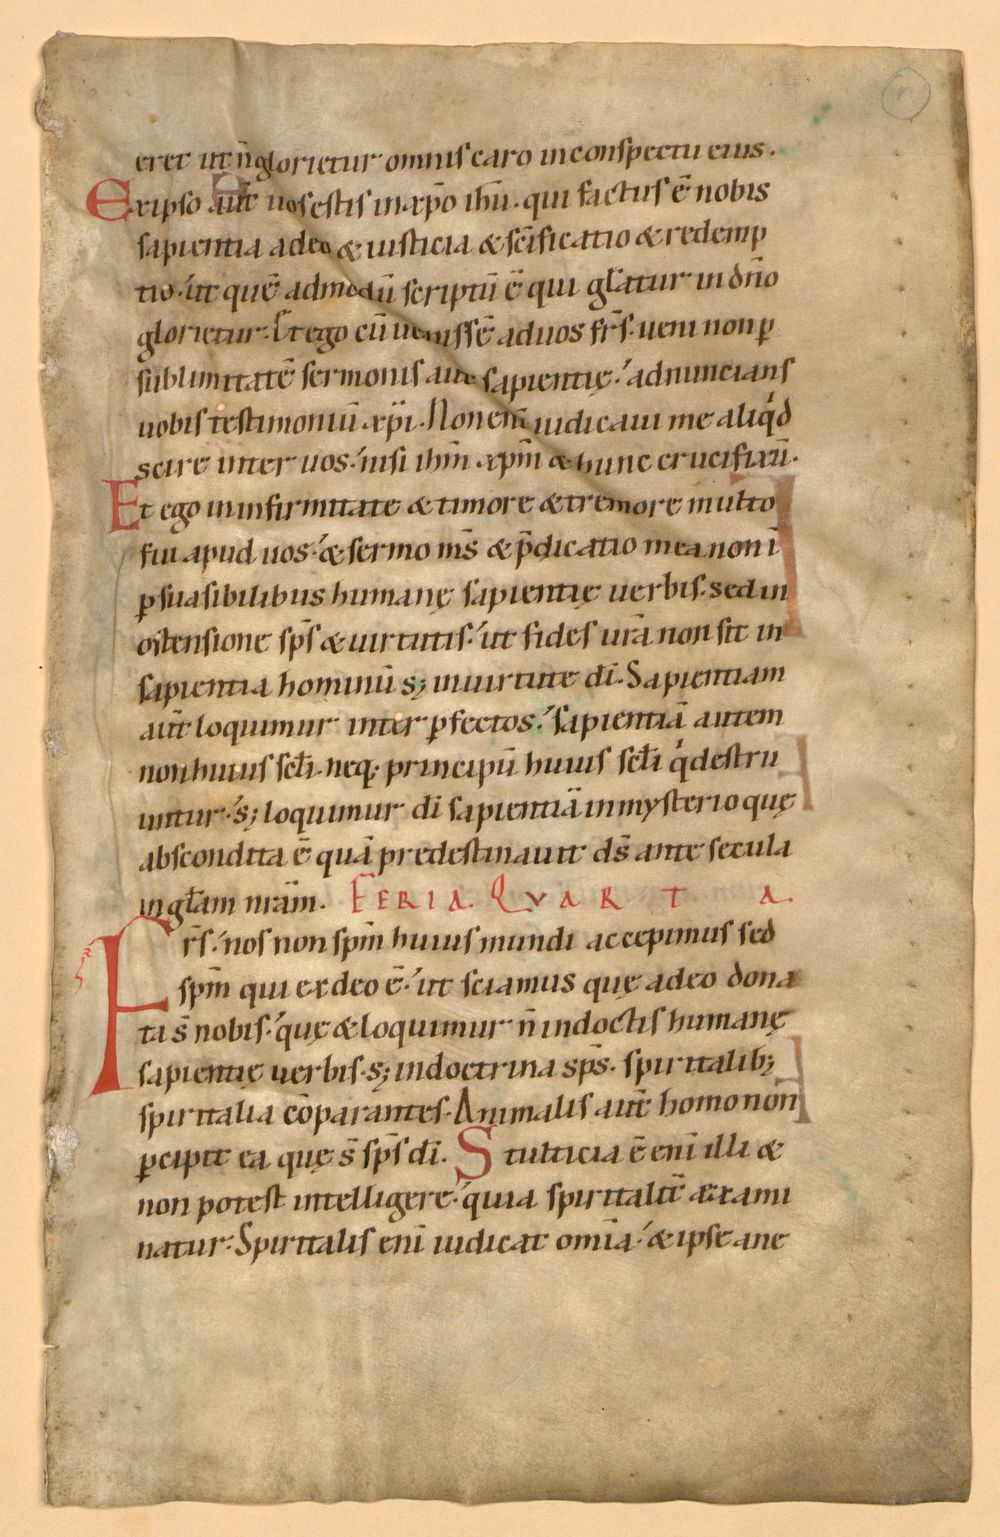 eret ut n̄ glorietur omnis caro in conspectu eius.
Ex ipso aut̄ vos estis in xp̄o ih̄u. qui factus ē nobis
sapientia a deo & iusticia & sc̄ificatio & redemp
tio. ut quē admodū scriptū ē qui gl̄atur in dn̄o
glorietur. Et ego cū venissē ad uos fr̄s. ueni non ꝑ
sublimitatē sermonis aut sapientię. adnuncians
uobis testimoniū xp̄i. Non eni̅ iudicaui me aliq́d
scire inter uos. nisi ih̄m xp̄m & hunc crucifixū.
Et ego in infirmitate & timore & tremore multo
fui apud uos. & sermo ms̄ & p̄dicatio mea non ī
ꝑsuasibilibus humanę sapientię uerbis. sed in
ostensione sps̄ & uirtutis. ut fides ur̄a non sit in
sapientia hominū s; in uirtute dī. Sapientiam
aut̄ loquimur inter ꝑfectos. sapientiā autem
non huius scl̄i. neq; principū huius scl̄i q́ destru
untur. s; loquimur dī sapientiā in mysterio quę
abscondita ē quā predestinauit ds̄ ante secula
in gl̄am nr̄am. FERIA QVARTA.
Fr̄s. nos non spm̄ huius mundi accepimus sed
spm̄ qui ex deo ē. ut sciamus quę a deo dona
ta s̄ nobis. quę & loquimur n̄ in doctis humanę
sapientię uerbis. s; in doctrina sps̄. spiritalib;
spiritalia cōparantes. Animalis aut̄ homo non
ꝑcipit ea quę s̄ sps̄ dī. Stulticia ē enī illi &
non potest intelligere. quia spiritalit̄ exami
natur. Spiritalis enī iudicat omīa. & ipse a ne